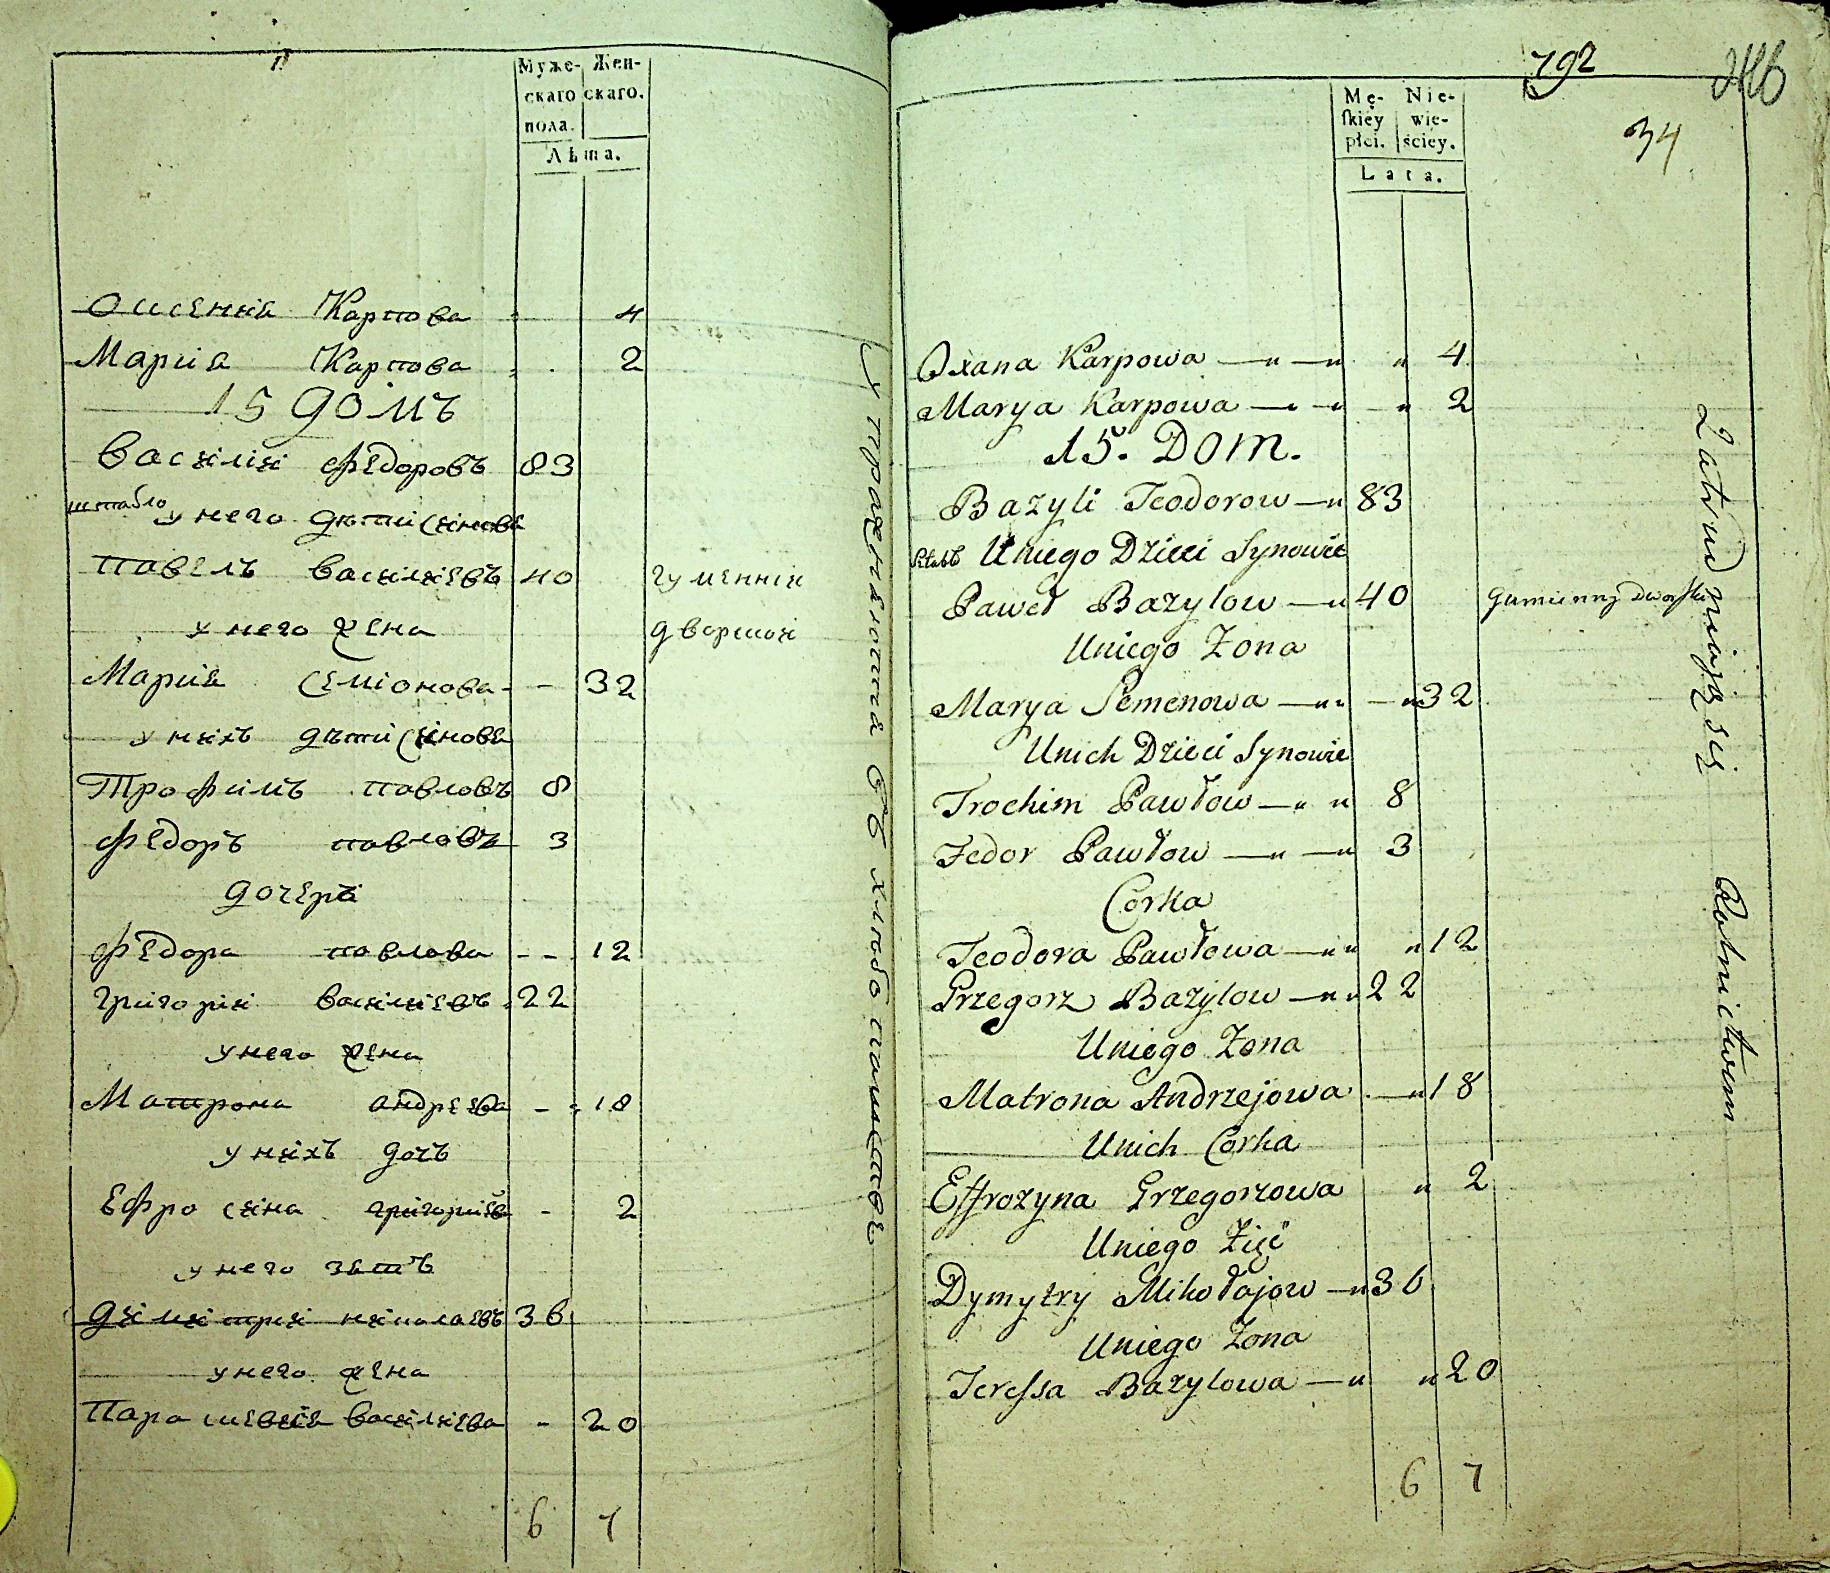 Муже- Жен-
скаго скаго.
пола.
Лѣта.
Оисенкія Карпова 4
Мария Карпова 2
15 домъ
Василии Федоровъ 83
у него дѣти синове
Павелъ Василиевъ 40 гуменнии
у него жена дворнои
Мария Семионова - - 32
у нихъ дѣти синове
Трофимъ Павловъ 8
Федоръ Павловъ 3
дочери
Федора Павлова - - 12
Григории Василиевъ 22
у него жена
Матрона Андреева - - 18
у нихъ дочъ
Ефросина Григориева - 2
у него зять
Димитрии Николаевъ 36
у него жена
Парасцевия Василиева - 20
6 7
упражняются въ хлебопашестве
792
34
Mę- Nie-
skiey wie-
płci. ściey.
Lata.
Oxana Karpowa — „ — „ „ 4
Marya Karpowa — „ — „ — „ 2
15. Dom.
Bazyli Teodorow — „ 83
Uniego Dzieci Synowie
Paweł Bazylow — „ 40 Gumienny dworski
Uniego Zona
Marya Semenowa — „ „ — „ 32
Unich Dzieci Synowie
Trochim Pawłow — „ „ 8
Fedor Pawłow — „ — „ 3
Corka
Teodora Pawłowa — „ „ „ 12
Grzegorz Bazylow — „ „ 22
Uniego Zona
Matrona Andrzejowa — „ 18
Unich Corka
Effrozyna Grzegorzowa „ 2
Uniego Zięć
Dymytry Mikołajow — „ 36
Uniego Zona
Teressa Bazylowa — „ „ 20
6 7
Zatrudniają się Rolnictwem